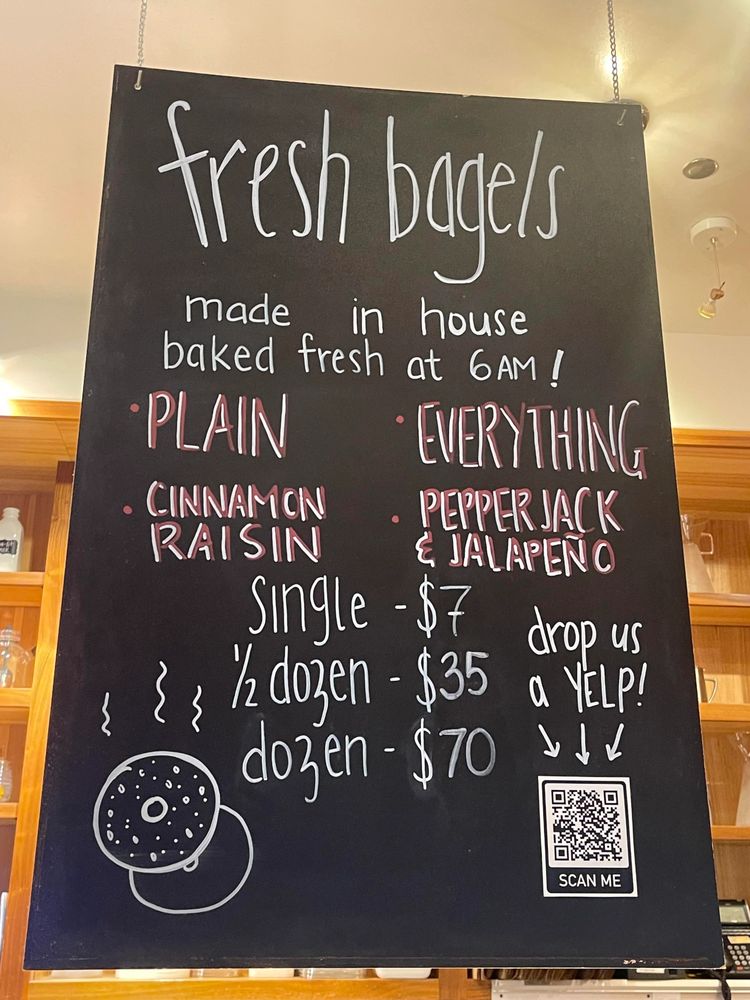 fresh bagels
made in house
baked fresh at 6AM!
• PLAIN
• EVERYTHING
• CINNAMON
RAISIN
• PEPPER JACK
& JALAPEÑO
single - $7
½ dozen - $35
dozen - $70
drop us
a YELP!
SCAN ME